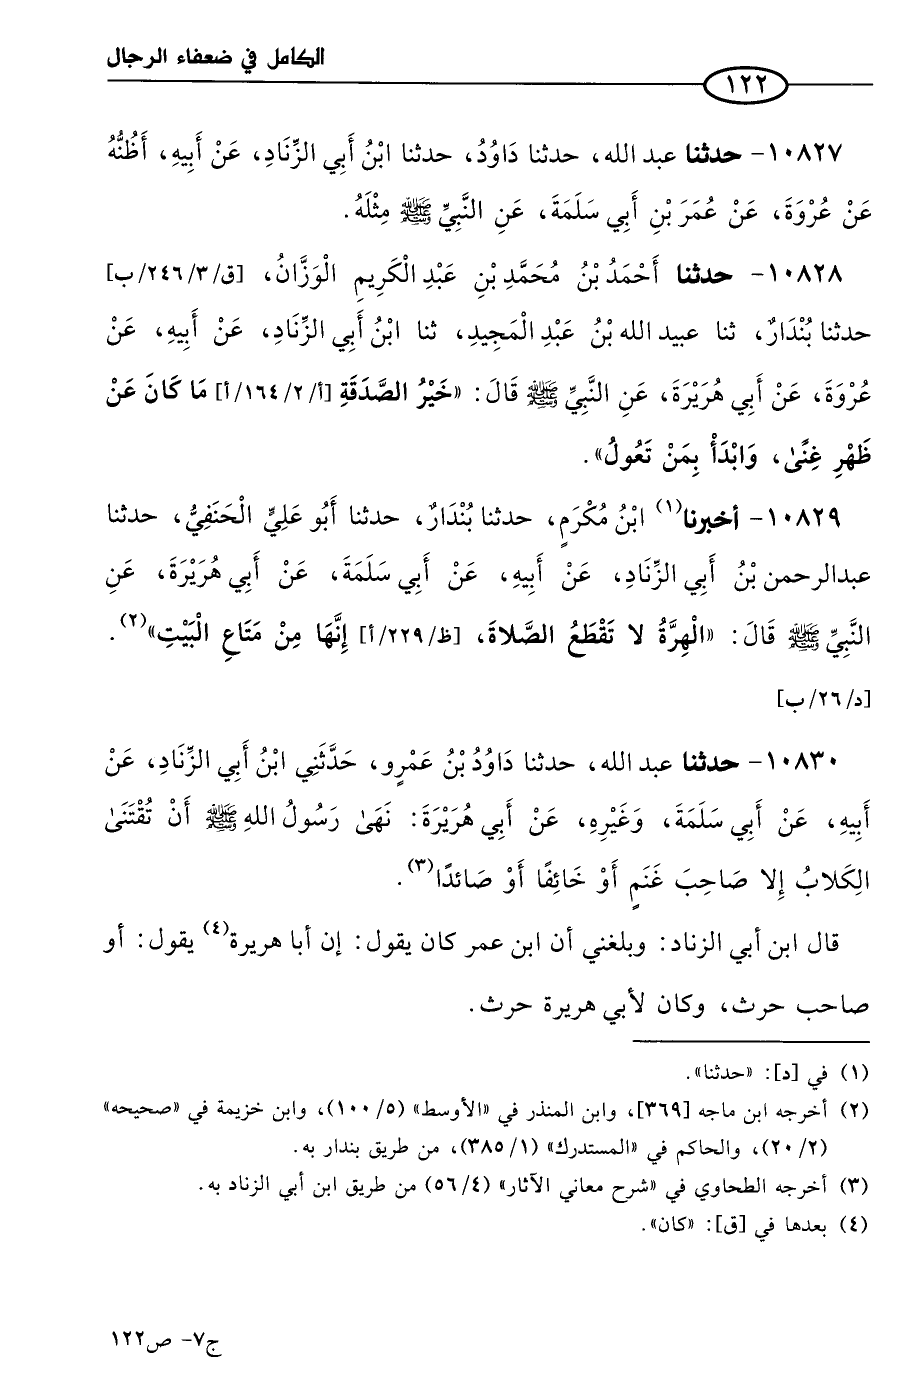 الكامل في ضعفاء الرجال
١٢٢
١٠٨٢٧- حدثنا عبد الله، حدثنا دَاوُدُ، حدثنا ابْنُ أَبِي الزِّنَادِ، عَنْ أَبِيهِ، أَظُنُّهُ
عَنْ عُرْوَةَ، عَنْ عُمَرَ بْنِ أَبِي سَلَمَةَ، عَنِ النَّبِيِّ ﷺ مِثْلَهُ.
١٠٨٢٨- حدثنا أَحْمَدُ بْنُ مُحَمَّدِ بْنِ عَبْدِ الْكَرِيمِ الْوَزَّانُ، [ق/٢٤٦/٣/ب]
حدثنا بُنْدَارٌ، ثنا عبيد الله بْنُ عَبْدِ الْمَجِيدِ، ثنا ابْنُ أَبِي الزِّنَادِ، عَنْ أَبِيهِ، عَنْ
عُرْوَةَ، عَنْ أَبِي هُرَيْرَةَ، عَنِ النَّبِيِّ ﷺ قَالَ: «خَيْرُ الصَّدَقَةِ [أ/١٦٤/٢/أ] مَا كَانَ عَنْ
ظَهْرِ غِنًى، وَابْدَأْ بِمَنْ تَعُولُ».
١٠٨٢٩- أخبرنا(١) ابْنُ مُكْرَمٍ، حدثنا بُنْدَارٌ، حدثنا أَبُو عَلِيٍّ الْحَنَفِيُّ، حدثنا
عبدالرحمن بْنُ أَبِي الزِّنَادِ، عَنْ أَبِيهِ، عَنْ أَبِي سَلَمَةَ، عَنْ أَبِي هُرَيْرَةَ، عَنِ
النَّبِيِّ ﷺ قَالَ: «الْهِرَّةُ لا تَقْطَعُ الصَّلاةَ، [ظ/٢٢٩/أ] إِنَّهَا مِنْ مَتَاعِ الْبَيْتِ»(٢).
[د/٢٦/ب]
١٠٨٣٠- حدثنا عبد الله، حدثنا دَاوُدُ بْنُ عَمْرٍو، حَدَّثَنِي ابْنُ أَبِي الزِّنَادِ، عَنْ
أَبِيهِ، عَنْ أَبِي سَلَمَةَ، وَغَيْرِهِ، عَنْ أَبِي هُرَيْرَةَ: نَهَى رَسُولُ اللهِ ﷺ أَنْ تُقْتَنَى
الِكَلابُ إِلا صَاحِبَ غَنَمٍ أَوْ خَائِفًا أَوْ صَائدًا(٣).
قال ابن أبي الزناد: وبلغني أن ابن عمر كان يقول: إن أبا هريرة(٤) يقول: أو
صاحب حرث، وكان لأبي هريرة حرث.
(١) في [د]: «حدثنا».
(٢) أخرجه ابن ماجه [٣٦٩]، وابن المنذر في «الأوسط» (١٠٠/٥)، وابن خزيمة في «صحيحه»
(٢٠/٢)، والحاكم في «المستدرك» (٣٨٥/١)، من طريق بندار به.
(٣) أخرجه الطحاوي في «شرح معاني الآثار» (٥٦/٤) من طريق ابن أبي الزناد به.
(٤) بعدها في [ق]: «كان».
ج٧- ص١٢٢